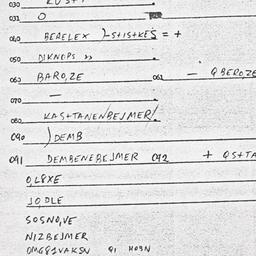 030
031 O
040 BEAELEX )-S+IS+KES = +
050 DIKNOPS »
060 BARO,ZE 061 – QBEROZE
070 –
080 KAS+TANENBEJMER!
090 )DEMB
091 DEMBENEBEJMER 092 + QS+TA
O,L8XE
JO,DLE
SOSNO,VE
NIZBEJMER